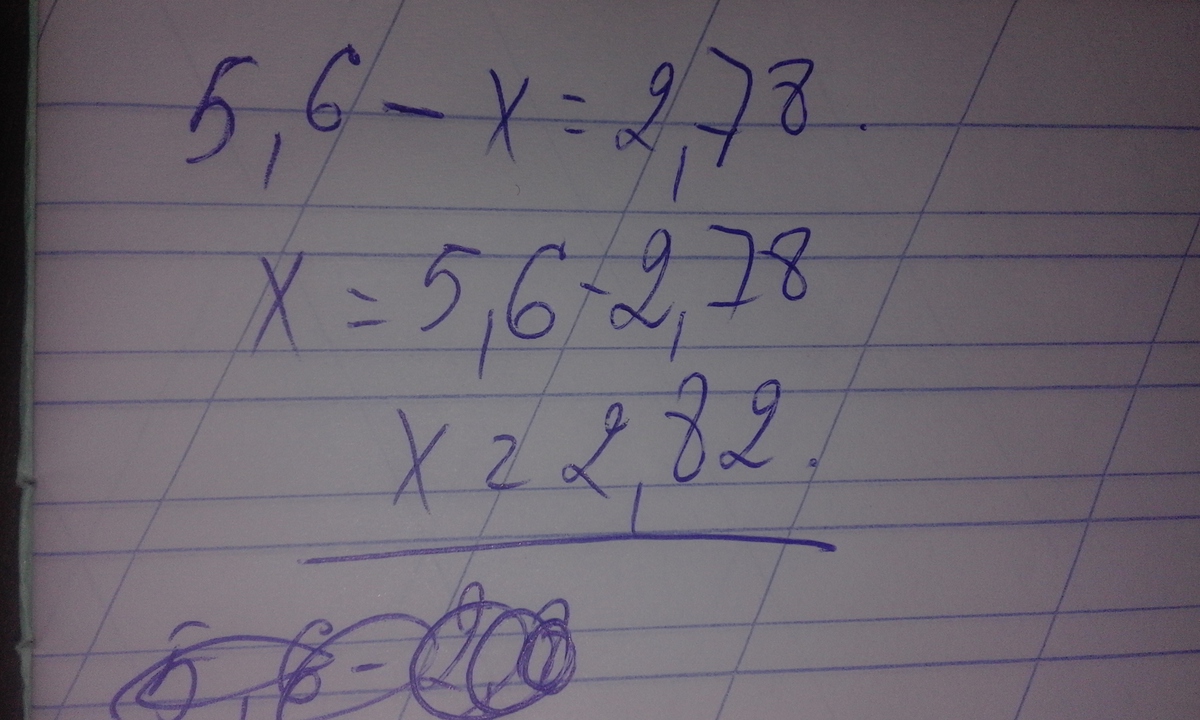 5,6 - x = 2,78.
x = 5,6 - 2,78
x = 2,82.